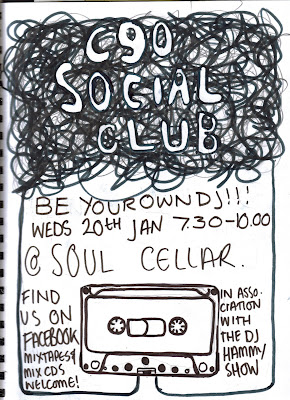 C90
SOCIAL
CLUB
BE YOUR OWN DJ!!!
WEDS 20TH JAN 7.30-10.00
@ SOUL CELLAR.
FIND
US ON
FACEBOOK
MIXTAPES &
MIX CDS
WELCOME!
IN ASSO-
CIATION
WITH
THE DJ
HAMMY
SHOW